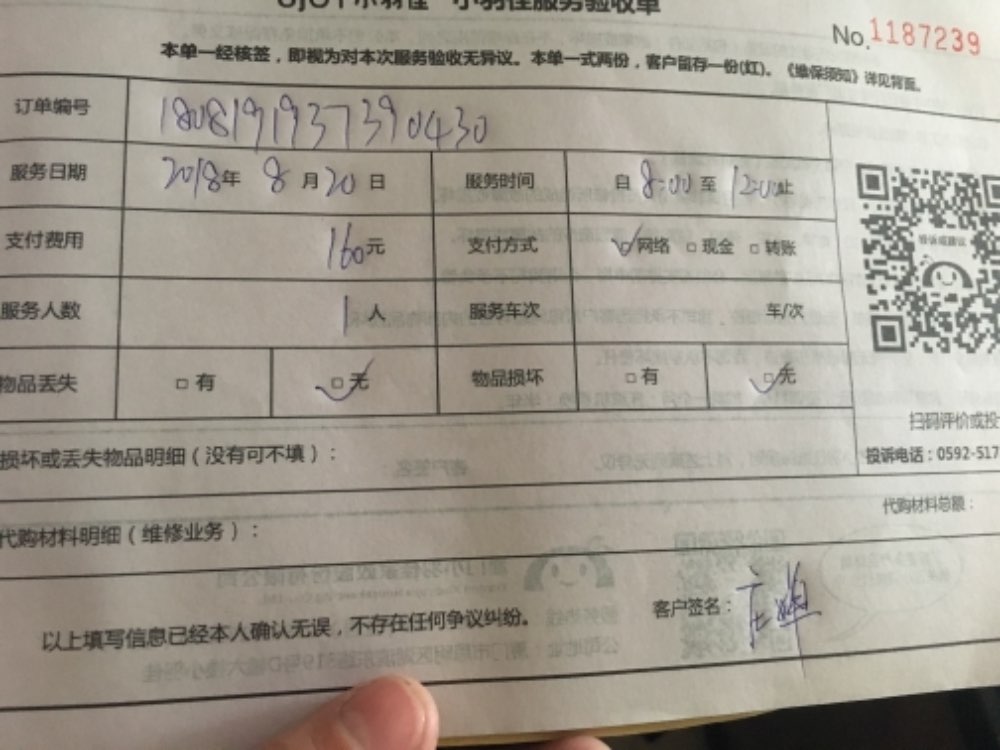 小羽佳服务验收单
No.1187239
本单一经核签，即视为对本次服务验收无异议。本单一式两份，客户留存一份(红)。《维保须知》详见背面。
订单编号 1808191937390430
服务日期 2018年 8月20日 服务时间 自 8:00 至 12:00止
支付费用 160元 支付方式 ☑网络 □现金 □转账
服务人数 1人 服务车次 车/次
物品丢失 □有 ☑无 物品损坏 □有 ☑无
投诉或建议
扫码评价或投
损坏或丢失物品明细（没有可不填）：
投诉电话：0592-517
代购材料明细（维修业务）：
代购材料总额：
以上填写信息已经本人确认无误，不存在任何争议纠纷。
客户签名：